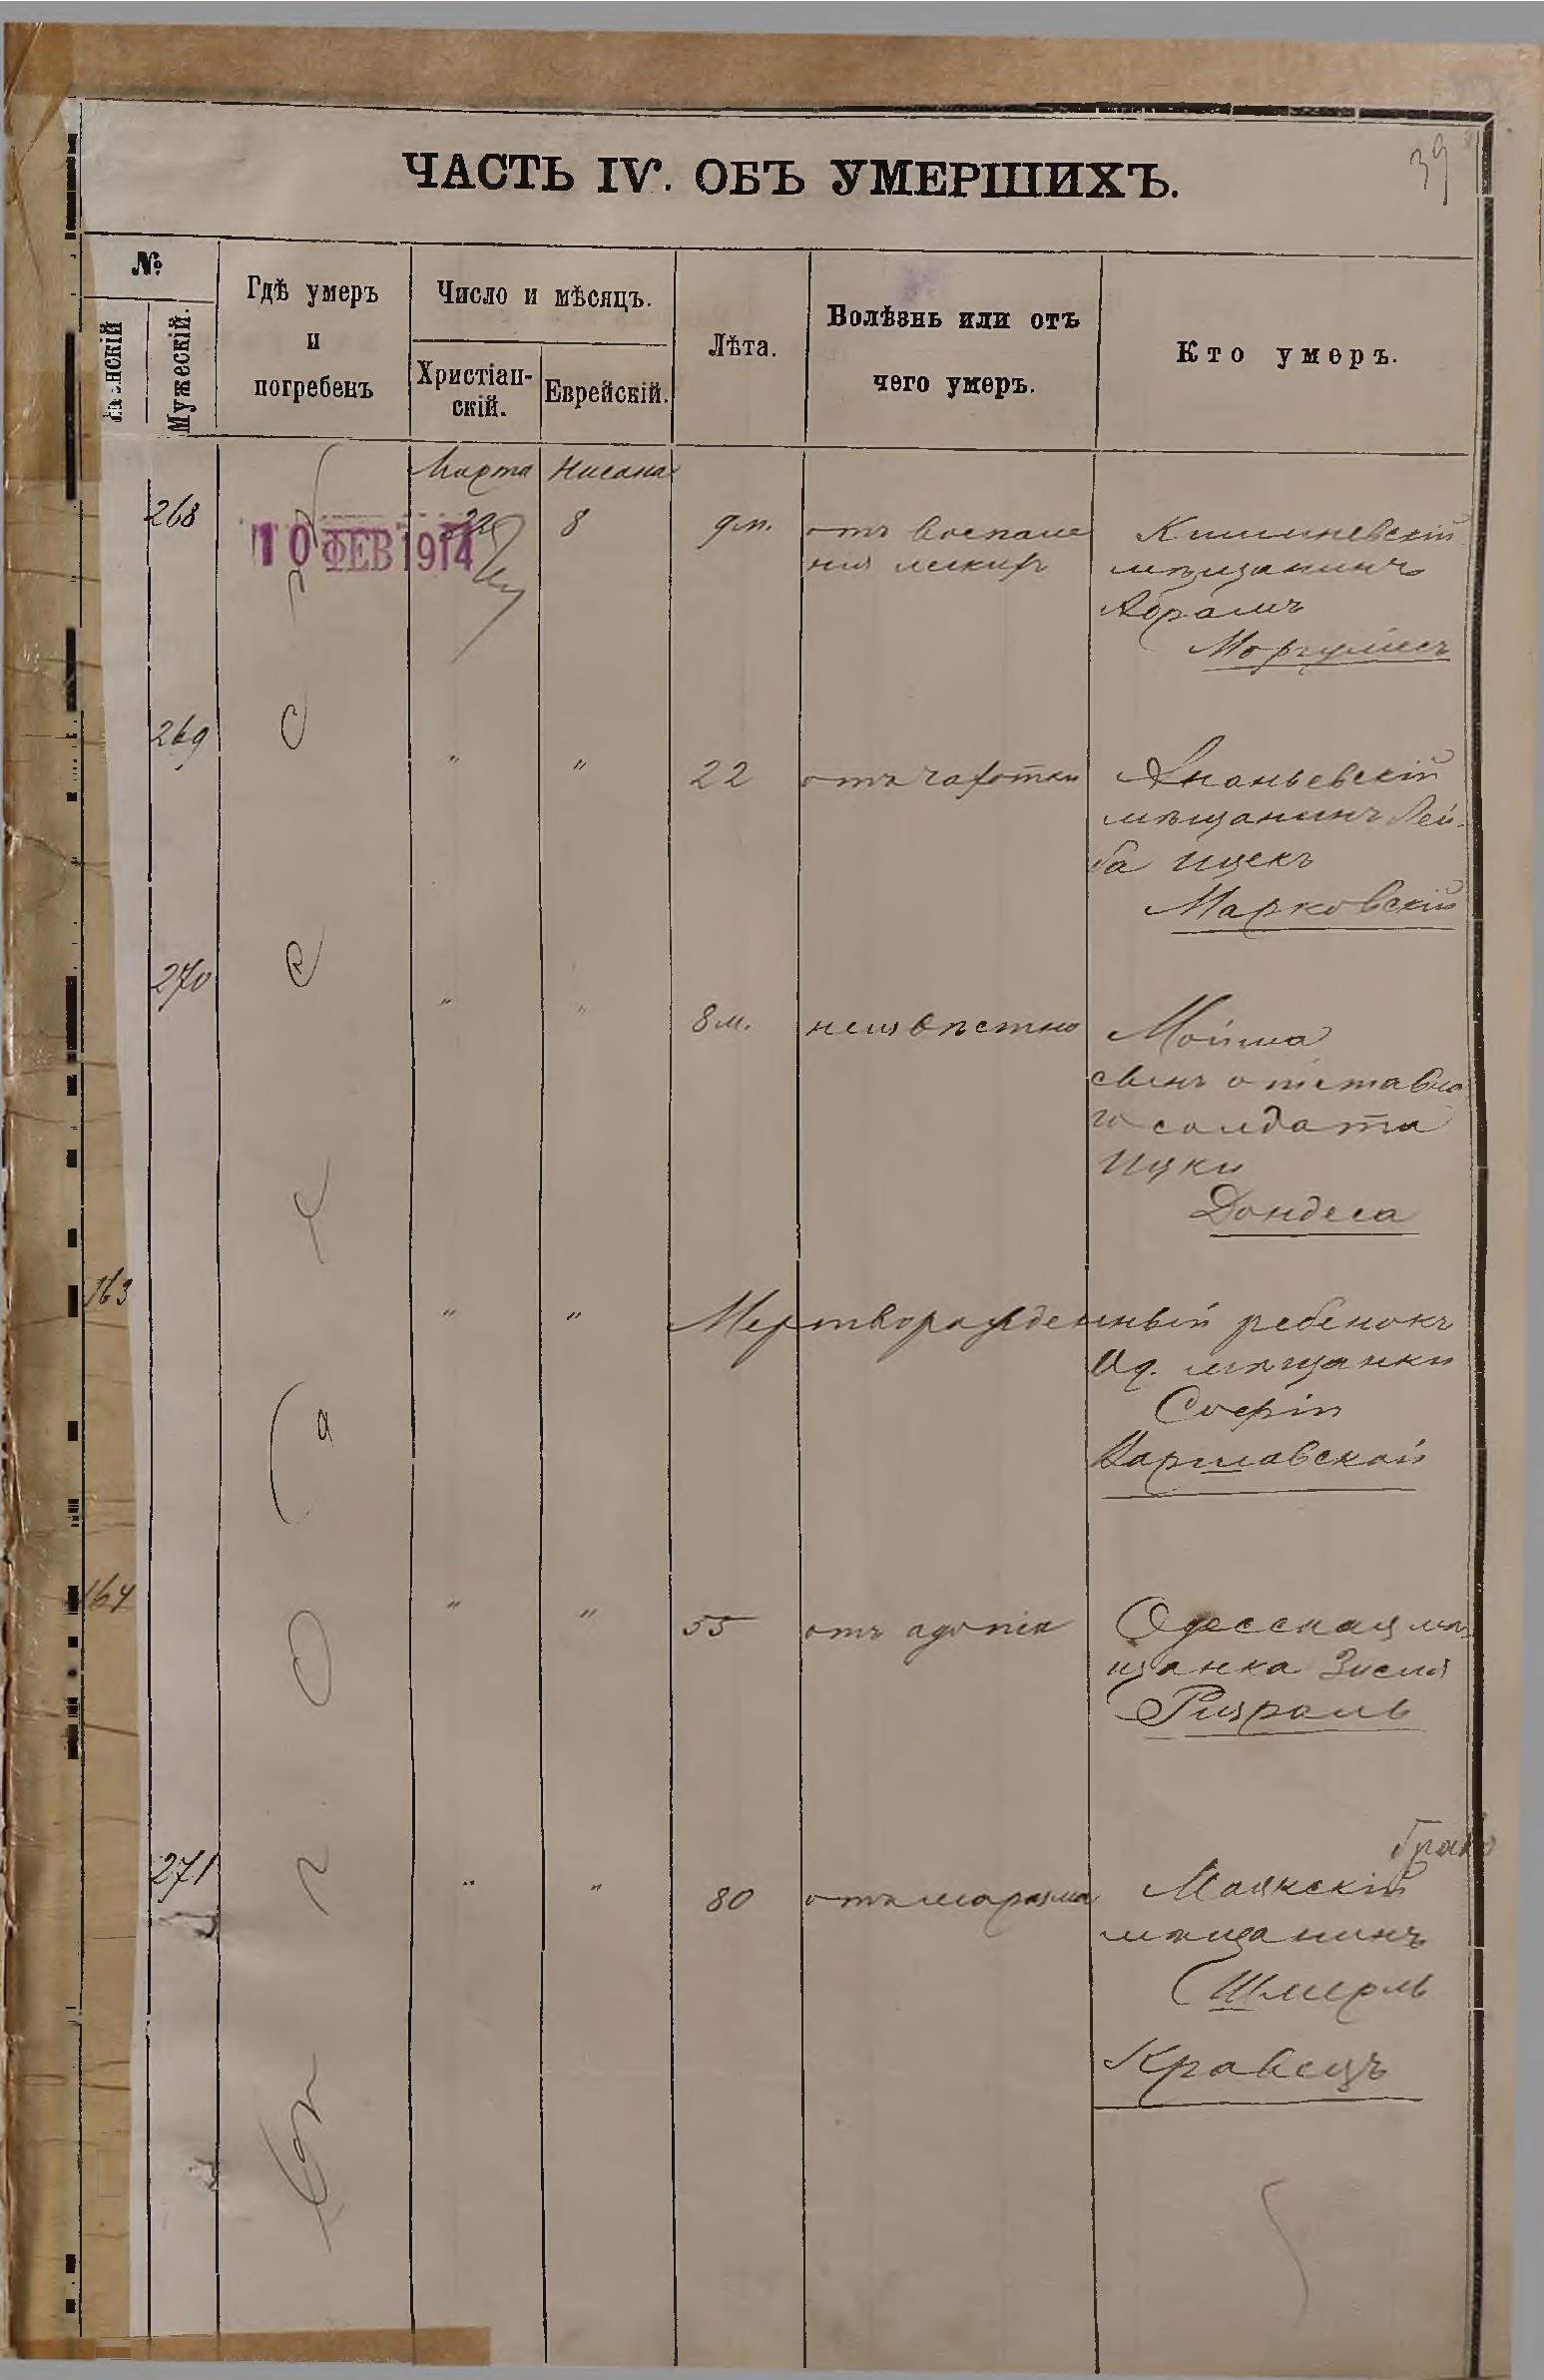 39
ЧАСТЬ IV. ОБЪ УМЕРШИХЪ.
№
Женскій
Мужескій.
Гдѣ умеръ
и
погребенъ
Число и мѣсяцъ.
Христіан-
скій.
Еврейскій.
Лѣта.
Болѣзнь или отъ
чего умеръ.
Кто умеръ.
Марта Нисана
268 8 9 м. отъ воспале Кишиневскій
нія мѣщанинъ
Абрамъ
Моргулисъ
10 ФЕВ 1914
269 " " 22 отъ чахотки Ананьевскій
мѣщанинъ Лей-
ба Ицекъ
Марковскій
270 " " 8 м. неизвѣстно Мойша
сынъ отставно
го солдата
Ицки
Дондеса
163 " " Мертворожденный ребенокъ
Од. мѣщанки
Софіи
Варшавской
164 " " 55 отъ Одесская мѣ-
щанка Зисля
271 " " 80 отъ маразма Маякскій
мѣщанинъ
Шмерль
Кравецъ
Въ г. Одессѣ